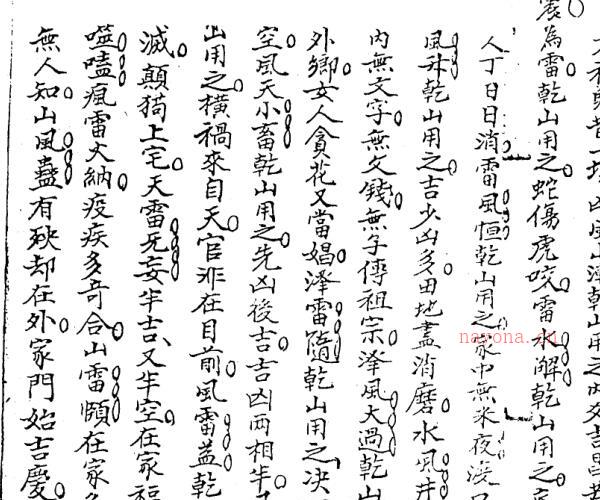 震為雷乾山用之蛇傷虎咬雷水解乾山用之
人丁日日消雷風恒乾山用之家中無米夜沒
風升乾山用之吉少凶多田地盡消磨水風井
內無文字無文錢無子傳祖宗澤風大過乾山
外鄉女人貪花又當娼澤雷隨乾山用之決
空風天小畜乾山用之先凶後吉吉凶兩相半
山用之橫禍來自天官非在目前風雷益乾
滅顛猗上宅天雷无妄半吉又半空在家福
噬嗑瘋雷大納疫疾多奇合山雷頤在家
無人知山風蠱有殃却在外家門始吉慶
nayona.cn